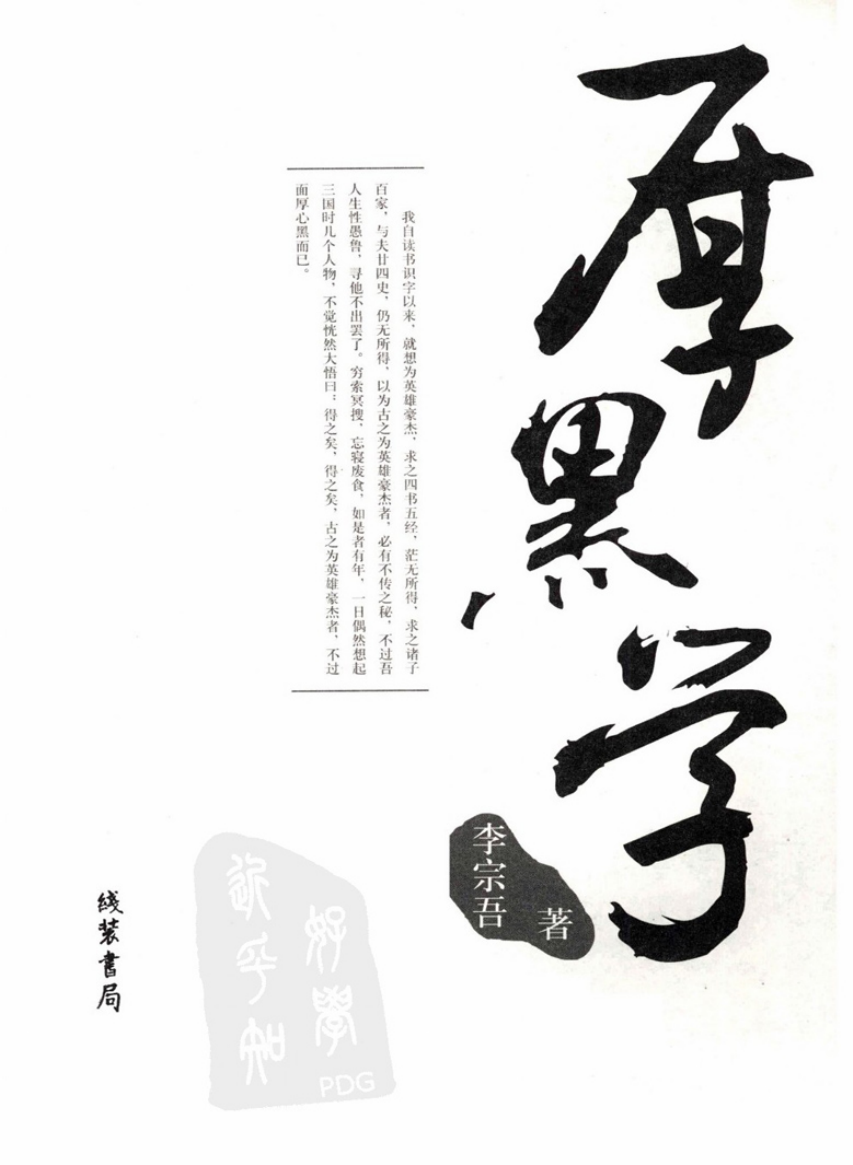 厚黑学
我自读书识字以来，就想为英雄豪杰，求之四书五经，茫无所得，求之诸子
百家，与夫廿四史，仍无所得，以为古之为英雄豪杰者，必有不传之秘，不过吾
人生性愚鲁，寻他不出罢了。穷索冥搜，忘寝废食，如是者有年，一日偶然想起
三国时几个人物，不觉恍然大悟曰：得之矣，得之矣，古之为英雄豪杰者，不过
面厚心黑而已。
李宗吾
著
好學
近乎知
PDG
线装書局